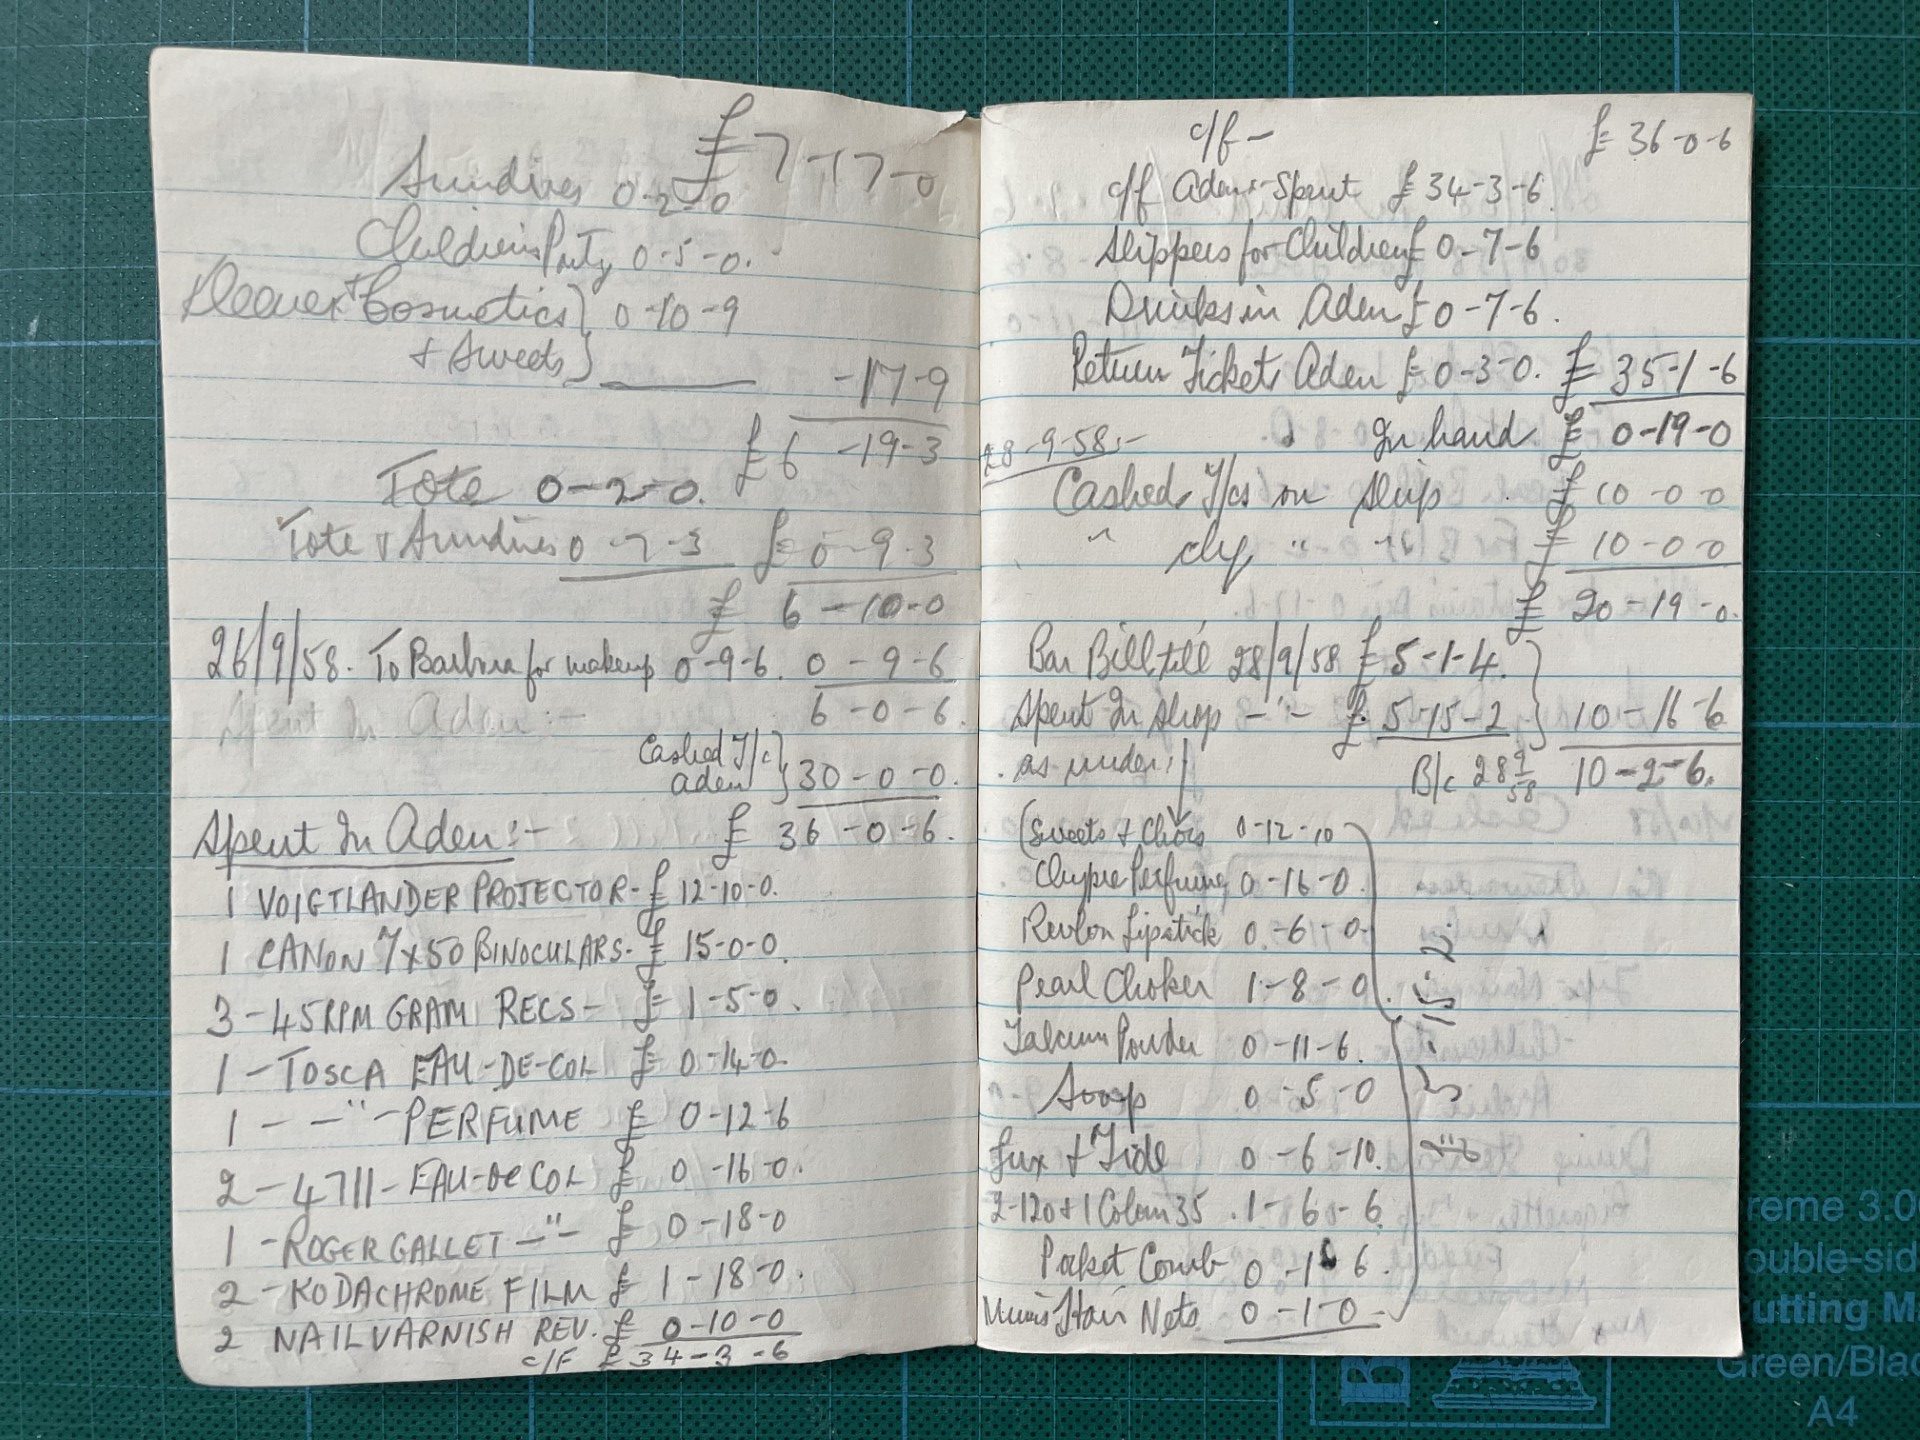 £ 7-17-0
Sundries 0-2-0
Children's Party 0-5-0.
Kleenex + Cosmetics } 0-10-9
+ Sweets }
-17-9
£ 6 -19-3
Tote 0-2-0.
Tote & Sundries 0-7-3 £ 0-9-3
£ 6-10-0
26/9/58. To Barbara for makeup 0-9-6. 0-9-6
6-0-6.
Spent In Aden:-
Cashed T/c }
Aden } 30-0-0.
Spent In Aden:- £ 36-0-6.
1 VOIGTLANDER PROJECTOR-£ 12-10-0.
1 CANON 7x50 BINOCULARS-£ 15-0-0.
3-45RPM GRAM RECS- £ 1-5-0.
1-TOSCA EAU-DE-COL £ 0-14-0.
1 - -"- PERFUME £ 0-12-6
2-4711-EAU-De COL £ 0-16-0.
1-ROGER GALLET -"- £ 0-18-0
2-KODACHROME FILM £ 1-18-0.
2 NAIL VARNISH REV. £ 0-10-0
c/F £ 34-3-6
c/f - £ 36-0-6
c/f Aden-Spent £ 34-3-6.
Slippers for Children £ 0-7-6
Drinks in Aden £ 0-7-6.
Return Tickets Aden £ 0-3-0. £ 35-1-6
In hand £ 0-19-0
28-9-58:-
Cashed T/cs on Ship £ 10-0-0
" " " £ 10-0-0
£ 20-19-0.
Bar Bill till 28/9/58 £ 5-1-4.
Spent In Shop -"- £ 5-15-2 } 10-16-6
as under:
B/c 28 9/58 10-2-6.
(Sweets & Chocs 0-12-10
Chypre Perfume 0-16-0.
Revlon Lipstick 0-6-0.
Pearl Choker 1-8-0.
Talcum Powder 0-11-6.
Soap 0-5-0
Lux & Tide 0-6-10.
2-120+1 Colour 35. 1-6-6
Pocket Comb 0-1-6.
Mum's Hair Nets 0-1-0
£ 5-15-2.
reme 3.0
ouble-sid
utting M
Green/Blac
A4